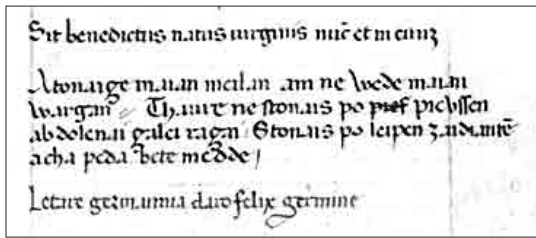 Sit benedictus natus virginis nuc̄ et in eunʒ
Atonaige maian meilan am ne wede maian
wargan // Thawe ne stonais po pref pievssen
abdolenai galei ragai Stonais po leipen zaidiantē
acha peda bete medde /
Letare germania claro felix germine